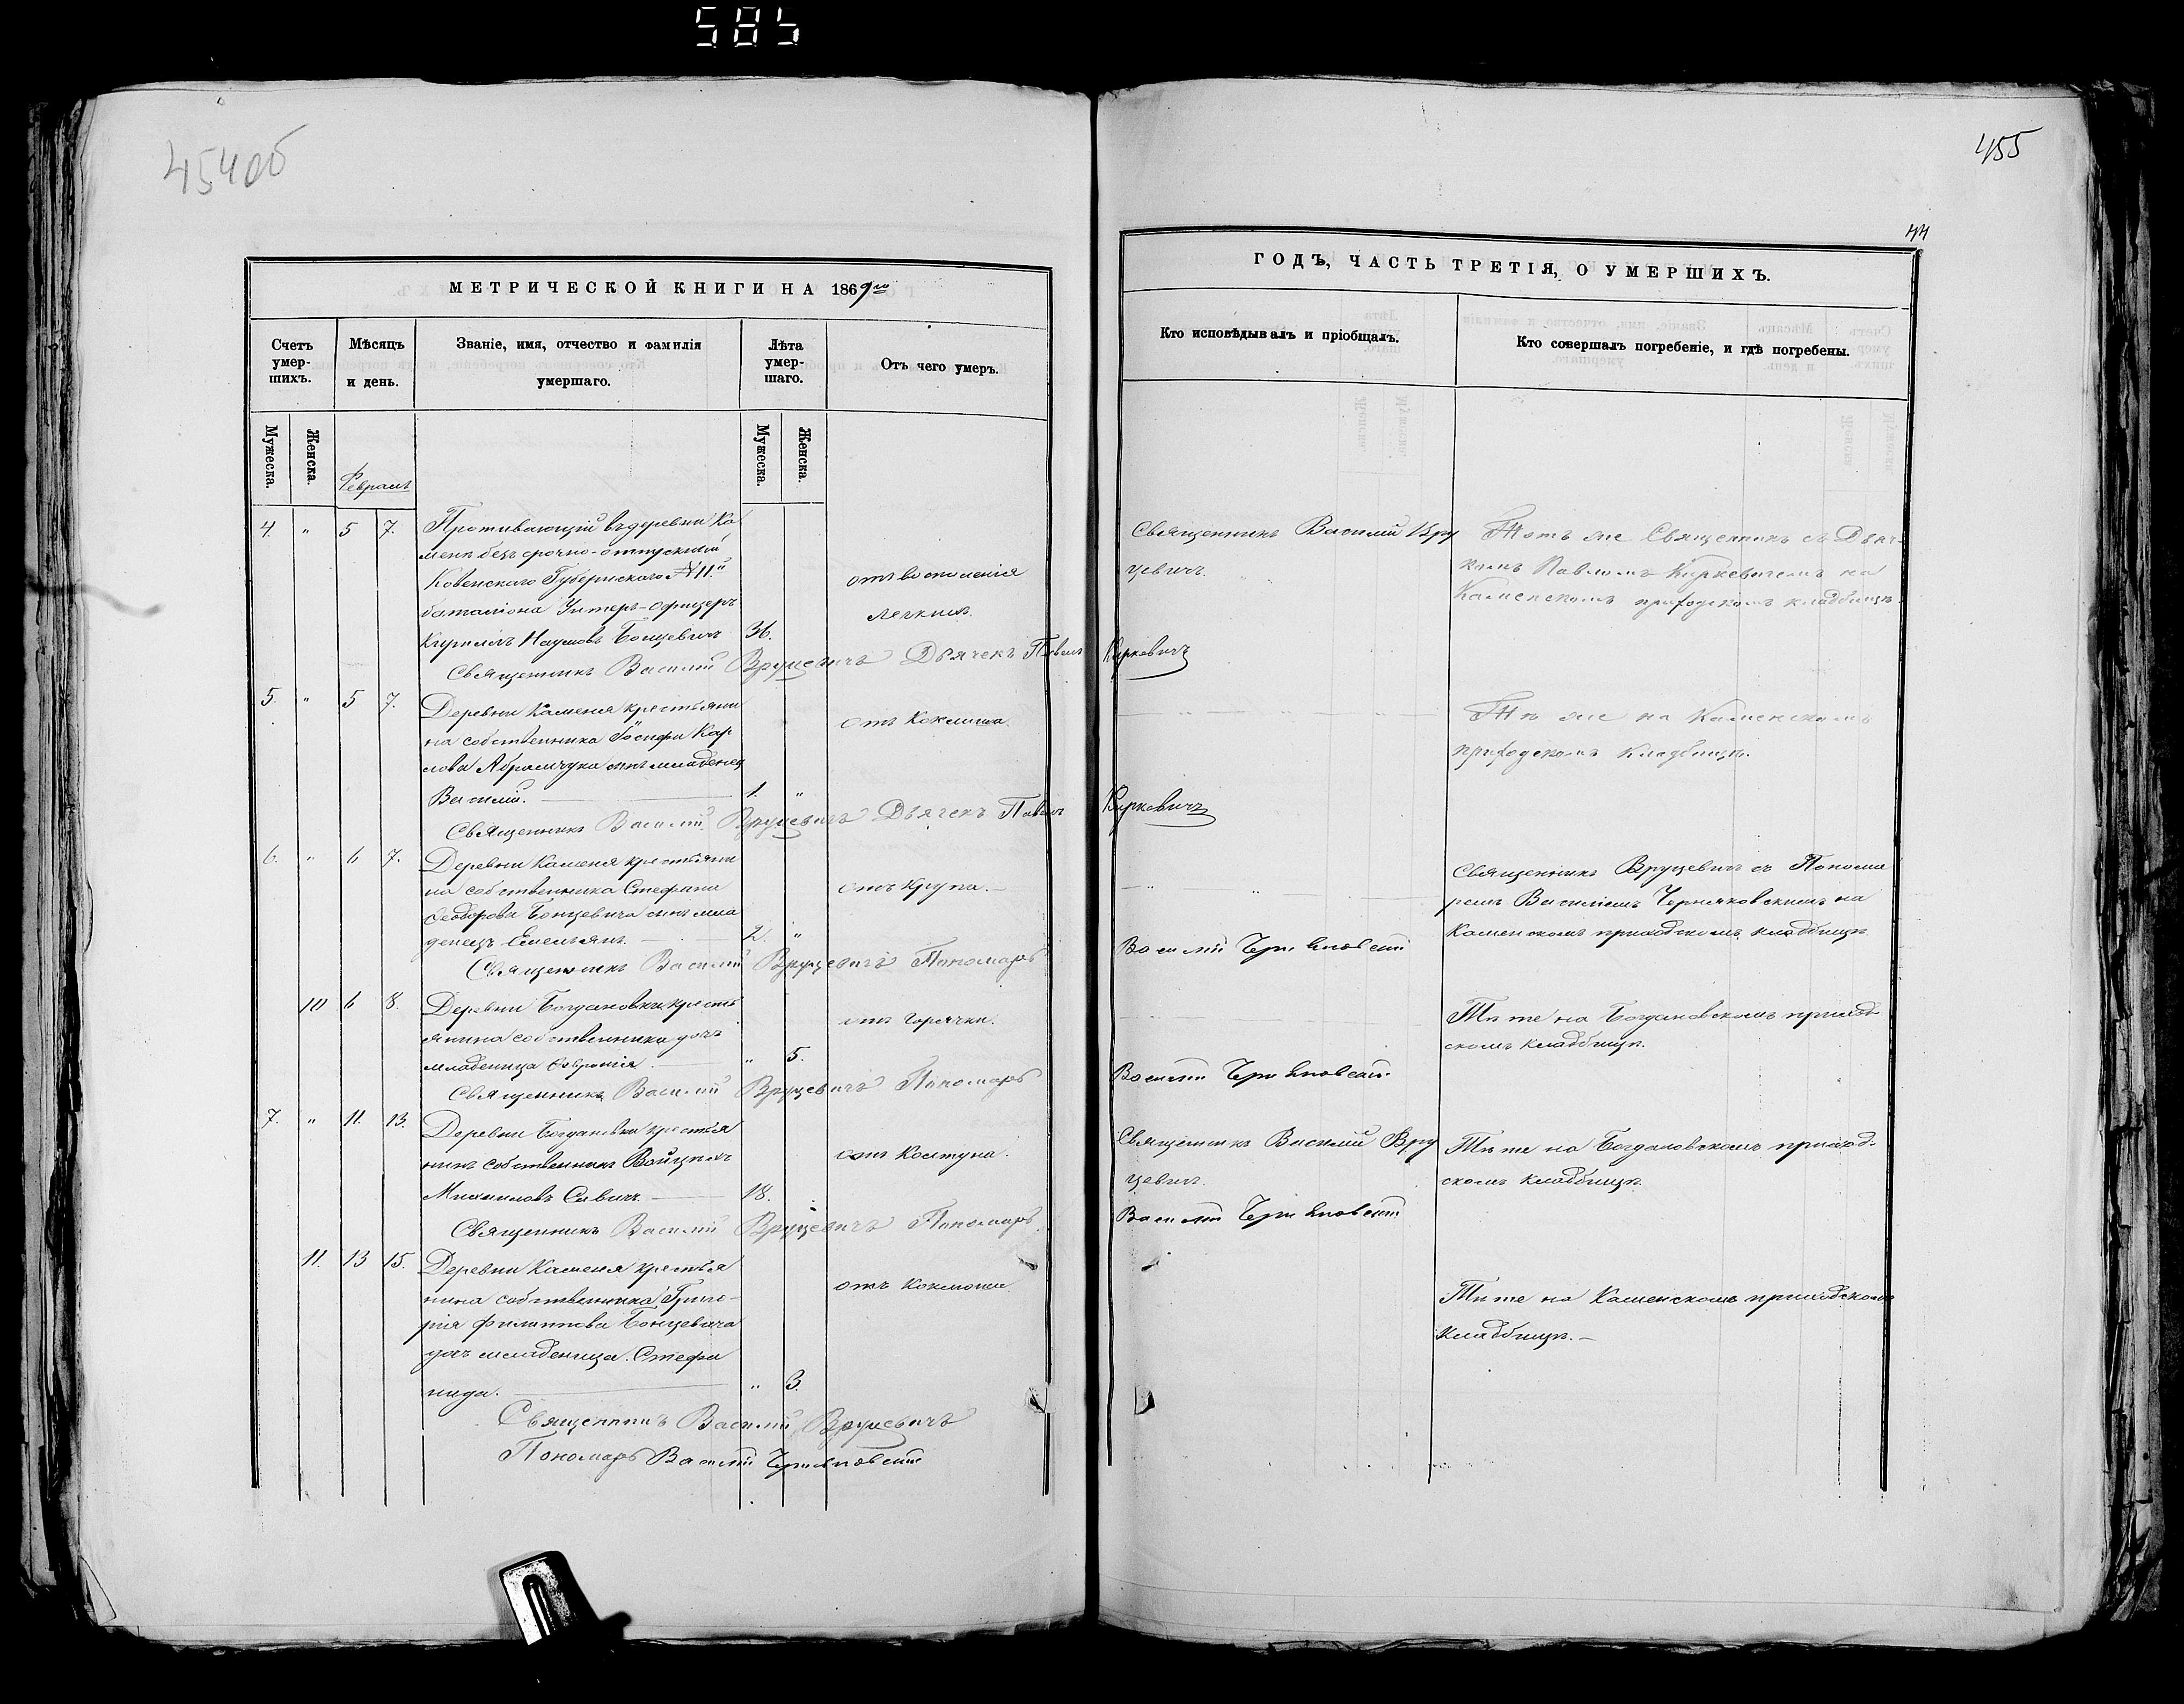 585
454об
455
44
МЕТРИЧЕСКОЙ КНИГИ НА 1869го
ГОДЪ, ЧАСТЬ ТРЕТІЯ, О УМЕРШИХЪ.
Счетъ умер-шихъ.
Мѣсяцъ и день.
Званіе, имя, отчество и фамилія умершаго.
Лѣта умер-шаго.
Отъ чего умеръ.
Кто исповѣдывалъ и пріобщалъ.
Кто совершалъ погребеніе, и гдѣ погребены.
Мужеска.
Женска.
Мужеска.
Женска.
Февраль
4. " 5 7.
Проживающій въ деревни Ка
меня безсрочно-отпускный
Ковенскаго Губернскаго №11.
баталіона Унтеръ-офицеръ
Кириллъ Наумовъ Бонцевичъ 36.
отъ воспаленія
легкихъ.
Священникъ Василій Вру
цевичъ.
Тотъ же Священникъ съ Дьяч
комъ Павломъ Киркевичемъ на
Каменскомъ приходскомъ кладбищѣ.
Священникъ Василій Вруцевичъ Дьячекъ Павелъ Киркевичъ
5 " 5 7.
Деревни Каменя крестьяни
на собственника Іосифа Кар
лова Абрамчука сынъ младенец
Василій. 1. "
отъ Коклюша
Тѣ же на Каменскомъ
приходскомъ кладбищѣ.
Священникъ Василій Вруцевичъ Дьячекъ Павелъ Киркевичъ
6. " 6 7.
Деревни Каменя крестьяни
на собственника Стефана
Феодорова Бонцевича сынъ мла
денецъ Емельянъ. 2. "
отъ крупа.
Священникъ Вруцевичъ съ Понома
ремъ Василіемъ Черняковскимъ на
Каменскомъ приходскомъ кладбищѣ
Священникъ Василій Вруцевичъ Пономарь Василій Черняковскій
10 6 8.
Деревни Богдановки кресть
янина собственника дочь
младеница " 5.
отъ горячки.
Тѣ же на Богдановскомъ приход
скомъ кладбищѣ.
Священникъ Василій Вруцевичъ Пономарь Василій Черняковскій
7. " 11. 13.
Деревни Богдановки крестья
нинъ собственникъ
Михаиловъ Савичъ. 18.
отъ Колтуна.
Священникъ Василій Вру
цевичъ.
Тѣ же на Богдановскомъ приход-
скомъ кладбищѣ.
Священникъ Василій Вруцевичъ Пономарь Василій Черняковскій
11. 13 15.
Деревни Каменя крестья
нина собственника Григо-
рія Филиппова Бонцевича
дочь младеница Стефа
нида. " 3.
отъ Коклюша.
Тѣ же на Каменскомъ приходскомъ
кладбищѣ.
Священникъ Василій Вруцевичъ
Пономарь Василій Черняковскій